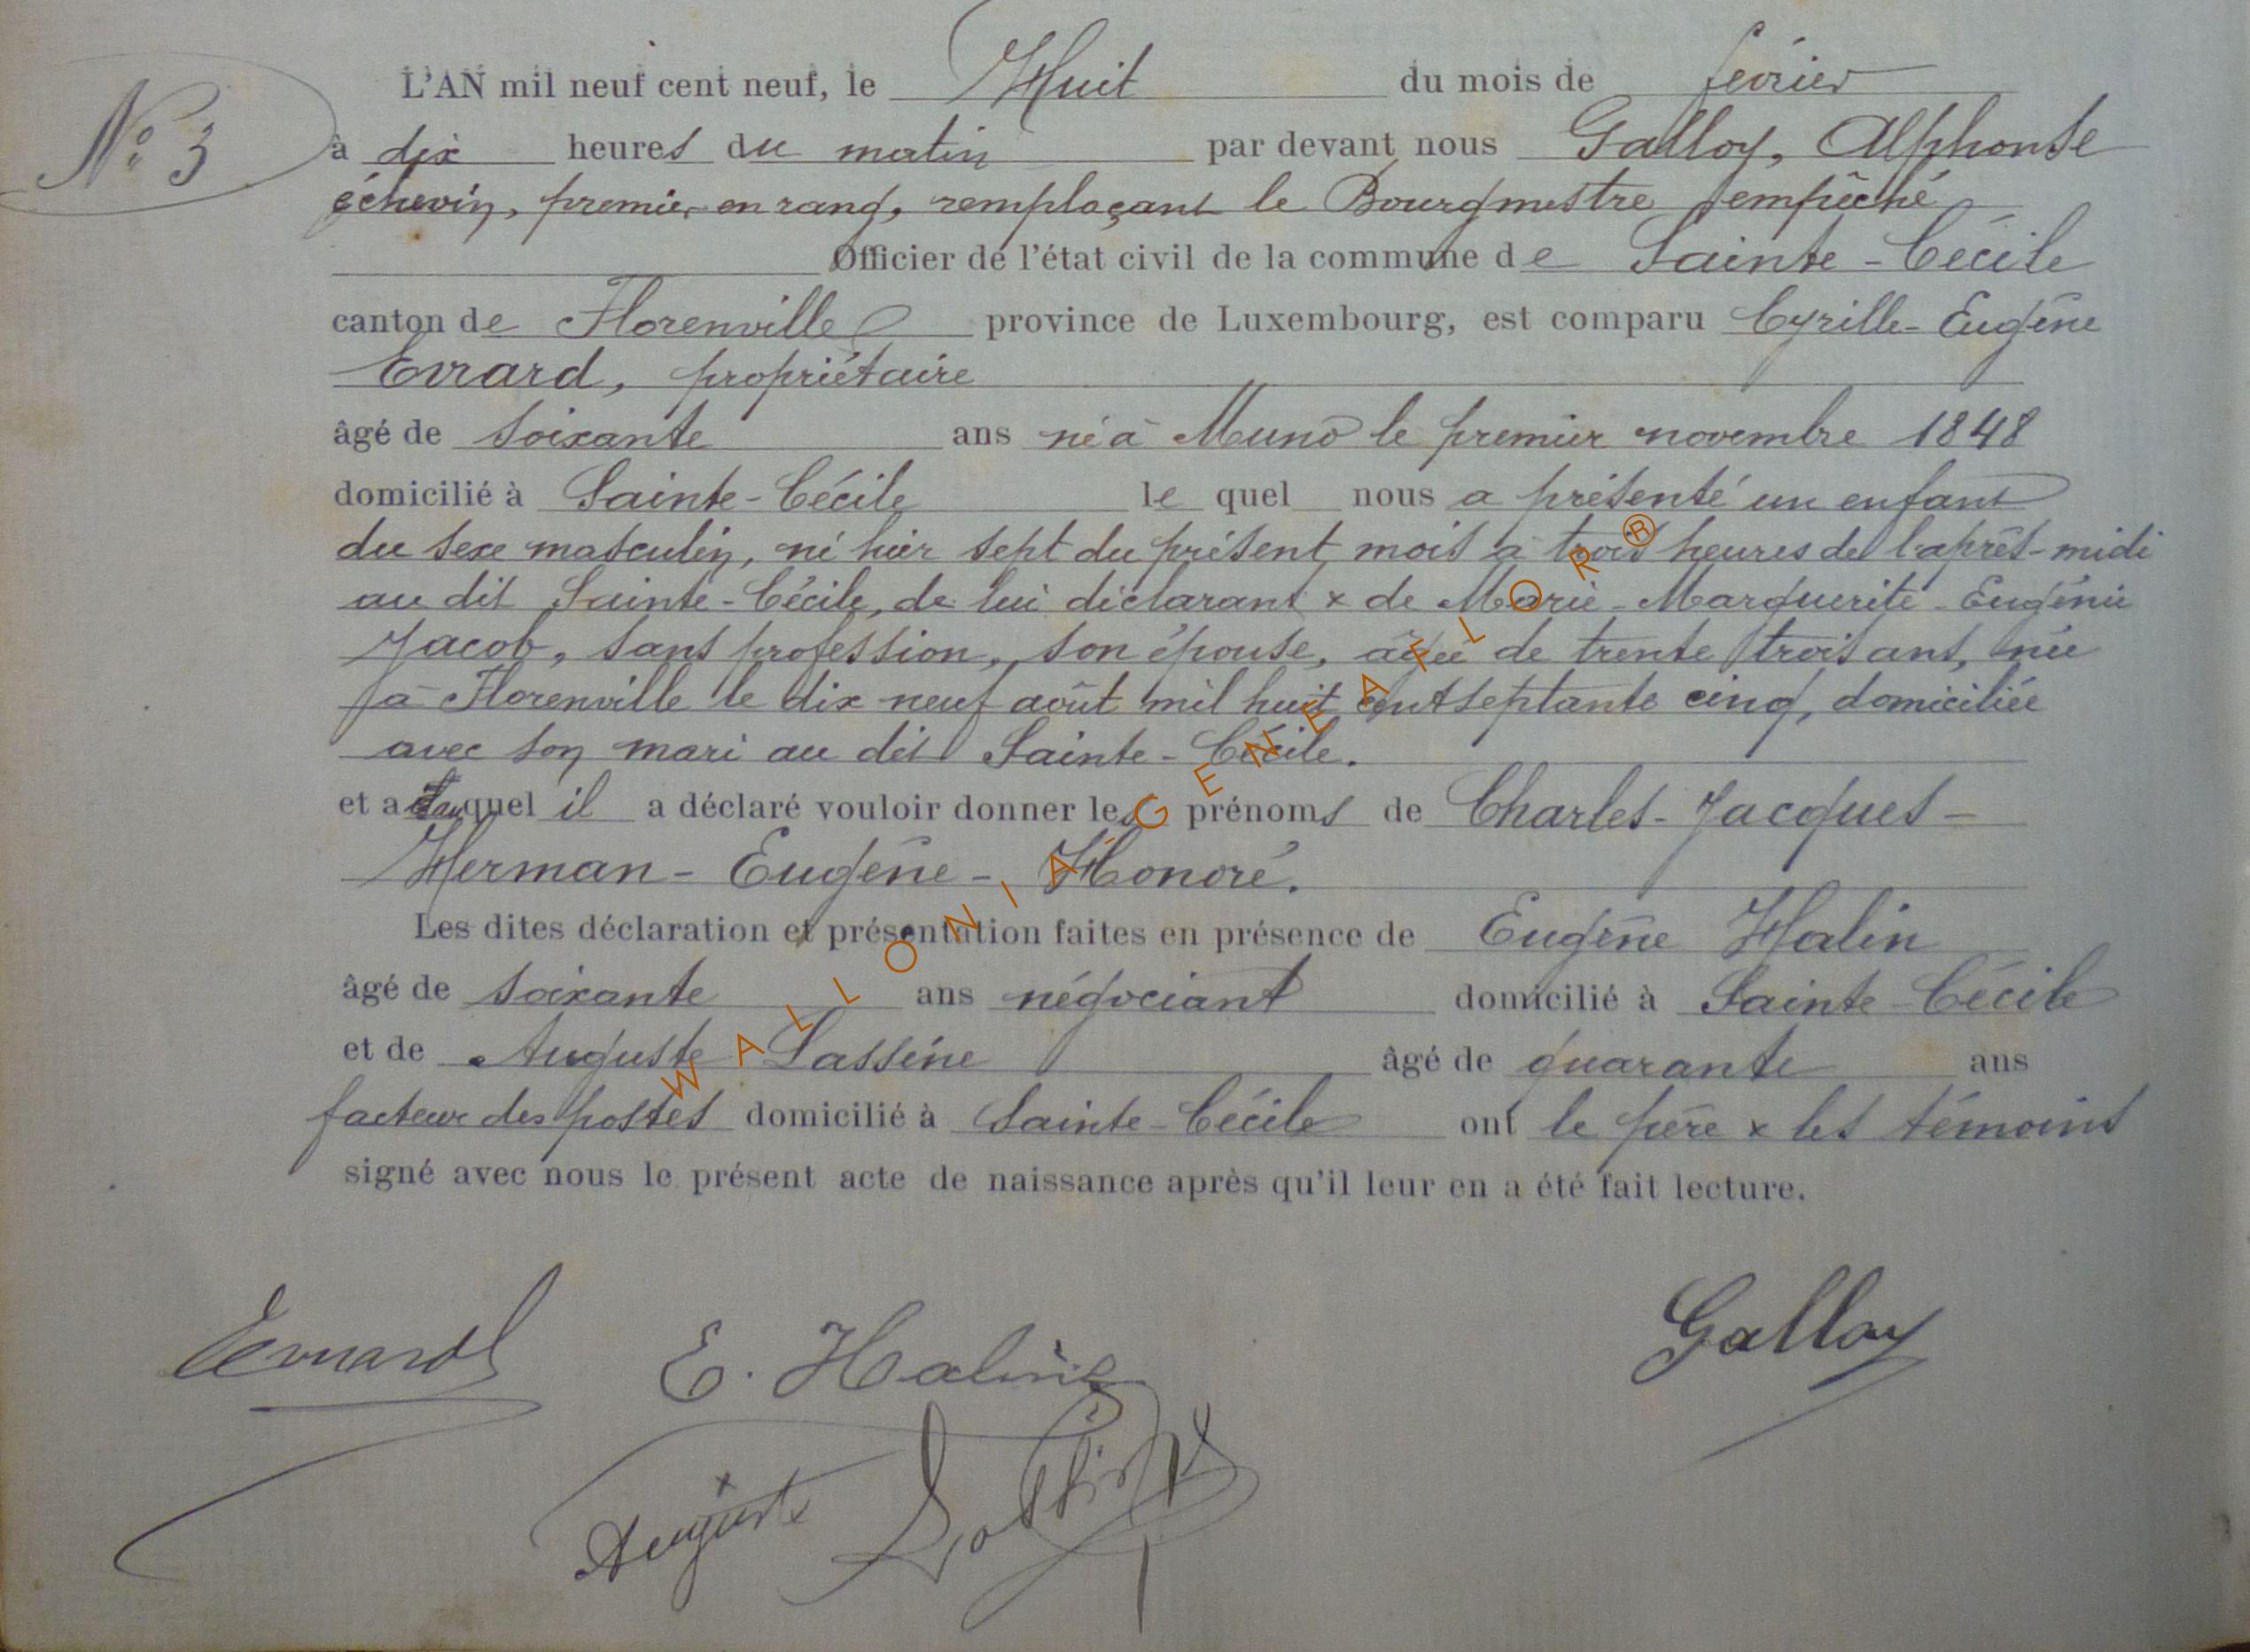 N° 3
L'AN mil neuf cent neuf, le Huit du mois de février
à dix heures du matin par devant nous Galloy, Alphonse
échevin, premier en rang, remplaçant le Bourgmestre empêché
Officier de l'état civil de la commune de Sainte-Cécile
canton de Florenville province de Luxembourg, est comparu Cyrille-Eugène
Evrard, propriétaire
âgé de soixante ans né à Muno le premier novembre 1848
domicilié à Sainte-Cécile le quel nous a présenté un enfant
du sexe masculin, né hier sept du présent mois à trois heures de l'après-midi
au dit Sainte-Cécile, de lui déclarant x de Marie-Marguerite-Eugénie
Jacob, sans profession, son épouse, âgée de trente trois ans, née
à Florenville le dix neuf août mil huit cent septante cinq, domiciliée
avec son mari au dit Sainte-Cécile.
et a quel il a déclaré vouloir donner les prénoms de Charles-Jacques-
Herman-Eugène-Honoré.
Les dites déclaration et présentation faites en présence de Eugène Halin
âgé de soixante ans négociant domicilié à Sainte-Cécile
et de Auguste Lassine âgé de quarante ans
facteur des postes domicilié à Sainte-Cécile ont le père x les témoins
signé avec nous le présent acte de naissance après qu'il leur en a été fait lecture.
Evrard E. Halin Galloy
Auguste Lassine
WALLONIA-GENEAFLOR®